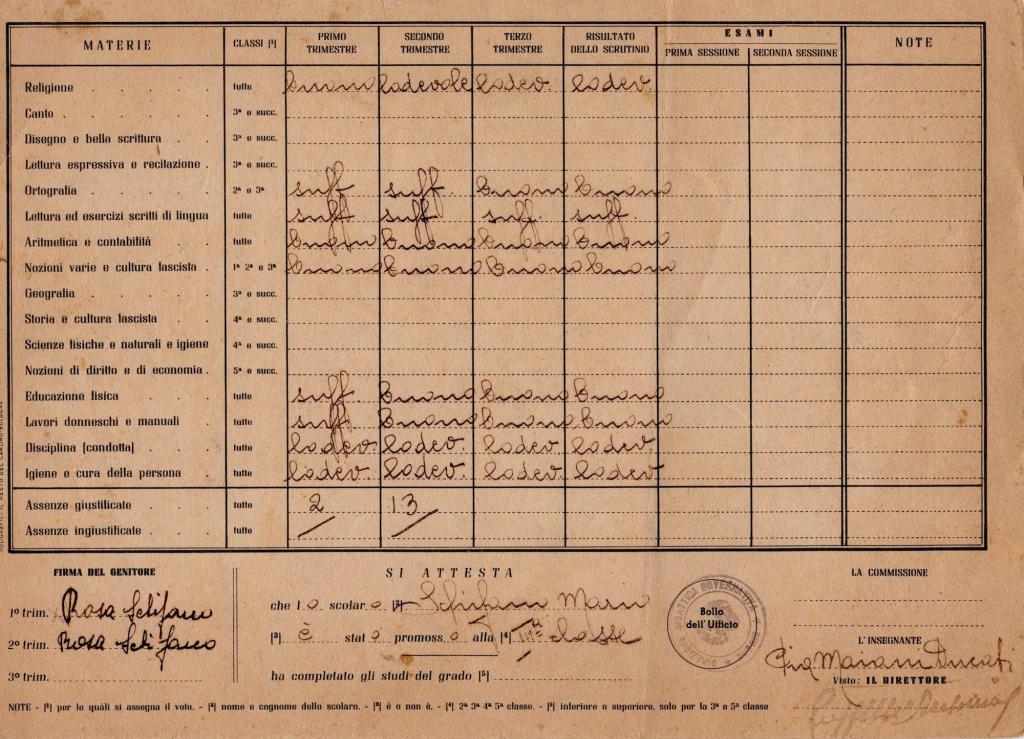 MATERIE CLASSI [¹] PRIMO TRIMESTRE SECONDO TRIMESTRE TERZO TRIMESTRE RISULTATO DELLO SCRUTINIO ESAMI PRIMA SESSIONE SECONDA SESSIONE NOTE
Religione tutte buono lodevole lodev. lodev.
Canto 3ª e succ.
Disegno e bella scrittura 3ª e succ.
Lettura espressiva e recitazione 3ª e succ.
Ortografia 2ª e 3ª suff suff. buono buono
Lettura ed esercizi scritti di lingua tutte suff suff suff. suff.
Aritmetica e contabilità tutte buono buono buono buono
Nozioni varie e cultura fascista 1ª 2ª e 3ª buono buono buono buono
Geografia 3ª e succ.
Storia e cultura fascista 4ª e succ.
Scienze fisiche e naturali e igiene 4ª e succ.
Nozioni di diritto e di economia 5ª e succ.
Educazione fisica tutte suff. buono buono buono
Lavori donneschi e manuali tutte suff. buono buono buono
Disciplina [condotta] tutte lodev. lodev. lodev. lodev.
Igiene e cura della persona tutte lodev. lodev. lodev. lodev.
Assenze giustificate tutte 2 13
Assenze ingiustificate tutte / /
FIRMA DEL GENITORE SI ATTESTA LA COMMISSIONE
1º trim. Rosa Schifano
che l o scolar o [²] Schifano Mario
Bollo dell'Ufficio
2º trim. Rosa Schifano
[³] è stat o promoss o alla [⁴] classe
L'INSEGNANTE
Pia Maiani Ducati
3º trim.
ha completato gli studi del grado [⁵]
Visto: IL DIRETTORE
NOTE - [¹] per le quali si assegna il voto. - [²] nome e cognome dello scolaro. - [³] è o non è. - [⁴] 2ª 3ª 4ª 5ª classe. - [⁵] inferiore o superiore, solo per la 3ª e 5ª classe